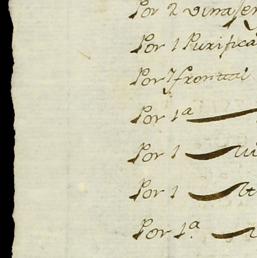 Por 2 vinajer
Por 1 Purifica
Por 7 frontai
Por 1ª
Por 1
Por 1
Por 1ª.